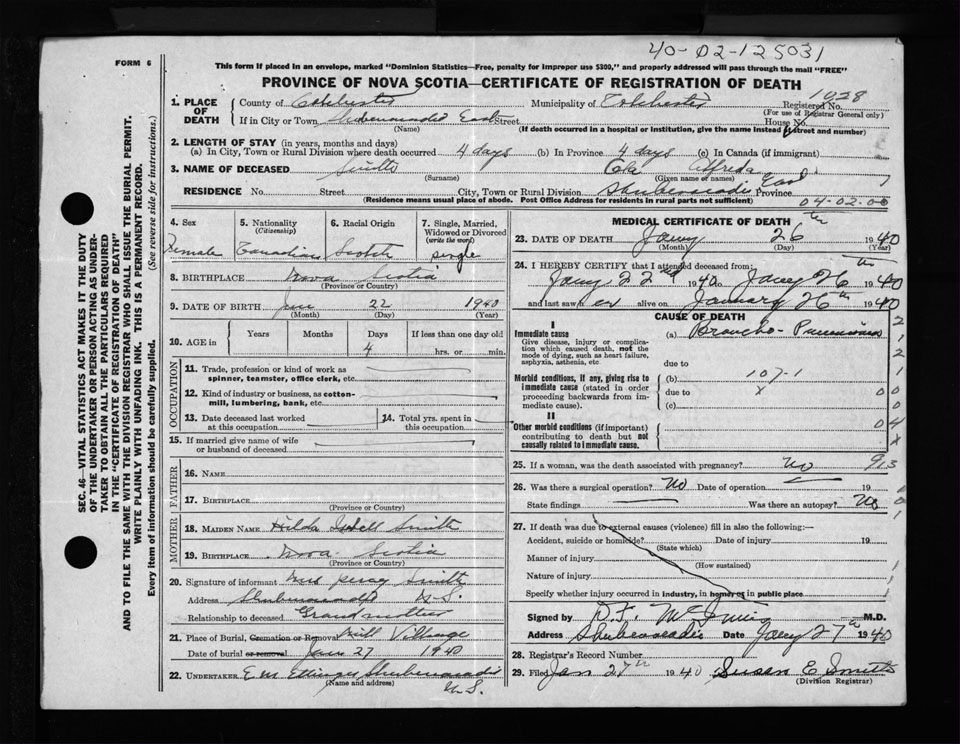 40-02-125031
FORM 6
This form if placed in an envelope, marked "Dominion Statistics—Free, penalty for improper use $300," and properly addressed will pass through the mail "FREE"
PROVINCE OF NOVA SCOTIA—CERTIFICATE OF REGISTRATION OF DEATH
1028
1. PLACE OF DEATH County of Colchester Municipality of Colchester Registered No.
(For use of Registrar General only)
If in City or Town Shubenacadie East Street House No.
(Name) (If death occurred in a hospital or institution, give the name instead of street and number)
2. LENGTH OF STAY (in years, months and days)
(a) In City, Town or Rural Division where death occurred 4 days (b) In Province 4 days (c) In Canada (if immigrant)
3. NAME OF DECEASED Smith Alfreda
(Surname) (Given name or names)
RESIDENCE No. Street City, Town or Rural Division Shubenacadie East Province
(Residence means usual place of abode. Post Office Address for residents in rural parts not sufficient) 04-02-00
4. Sex Female
5. Nationality (Citizenship) Canadian
6. Racial Origin Scotch
7. Single, Married, Widowed or Divorced (write the word) single
8. BIRTHPLACE Nova Scotia
(Province or Country)
9. DATE OF BIRTH Jan 22 1940
(Month) (Day) (Year)
10. AGE in Years Months Days If less than one day old
4 hrs. or min.
OCCUPATION
11. Trade, profession or kind of work as spinner, teamster, office clerk, etc.
12. Kind of industry or business, as cotton-mill, lumbering, bank, etc.
13. Date deceased last worked at this occupation
14. Total yrs. spent in this occupation
15. If married give name of wife or husband of deceased
FATHER
16. NAME
17. BIRTHPLACE
(Province or Country)
MOTHER
18. MAIDEN NAME Hilda Smith
19. BIRTHPLACE Nova Scotia
(Province or Country)
20. Signature of informant Mrs Percy Smith
Address Shubenacadie N.S.
Relationship to deceased Grandmother
21. Place of Burial, Cremation or Removal Mill Village
Date of burial or removal Jan 27 1940
22. UNDERTAKER E.M. Ettinger Shubenacadie
(Name and address) N.S.
MEDICAL CERTIFICATE OF DEATH
23. DATE OF DEATH Jany 26th 1940
(Month) (Day)
24. I HEREBY CERTIFY that I attended deceased from:
Jany 22nd 1940 to Jany 26th 1940
and last saw her alive on January 26th 1940
CAUSE OF DEATH
I
Immediate cause (a) Broncho-Pneumonia
Give disease, injury or complication which caused death, not the mode of dying, such as heart failure, asphyxia, asthenia, etc.
due to
Morbid conditions, if any, giving rise to immediate cause (stated in order proceeding backwards from immediate cause).
(b) 107-1
due to x
(c)
II
Other morbid conditions (if important) contributing to death but not causally related to immediate cause.
25. If a woman, was the death associated with pregnancy? No 913
26. Was there a surgical operation? No Date of operation 19
State findings Was there an autopsy? No
27. If death was due to external causes (violence) fill in also the following:—
Accident, suicide or homicide? Date of injury 19
(State which)
Manner of injury
(How sustained)
Nature of injury
Specify whether injury occurred in industry, in home, or in public place
Signed by M.D.
Address Shubenacadie Date Jany 27th 1940
28. Registrar's Record Number
29. Filed Jan 27th 1940 Susan E Smith
(Division Registrar)
SEC. 46—VITAL STATISTICS ACT MAKES IT THE DUTY
OF THE UNDERTAKER OR PERSON ACTING AS UNDER-
TAKER TO OBTAIN ALL THE PARTICULARS REQUIRED
IN THE "CERTIFICATE OF REGISTRATION OF DEATH"
AND TO FILE THE SAME WITH THE DIVISION REGISTRAR WHO SHALL ISSUE THE BURIAL PERMIT.
WRITE PLAINLY WITH UNFADING INK. THIS IS A PERMANENT RECORD.
Every item of information should be carefully supplied. (See reverse side for instructions.)